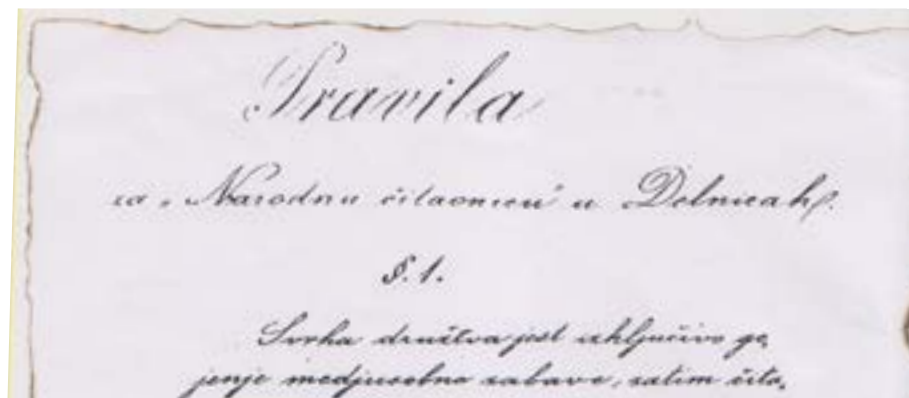 Pravila
za „Narodnu čitaonicu“ u Delnicah.
§. 1.
Svrha družtva jest izključivo go,
jenje medjusobne zabave, zatim čita,